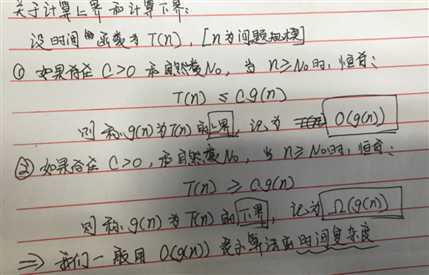 关于计算上界和计算下界:
设时间的函数为 T(n), [n为问题规模]
① 如果存在 C>0 和自然数N₀, 当 n≥N₀时, 恒有:
T(n) ≤ Cg(n)
则称, g(n)为T(n)的上界, 记为 O(g(n))
② 如果存在 C>0, 和自然数N₀, 当 n≥N₀时, 恒有:
T(n) ≥ Cg(n)
则称 g(n)为T(n)的下界, 记为 Ω(g(n))
⇒ 我们一般用 O(g(n)) 表示算法的时间复杂度